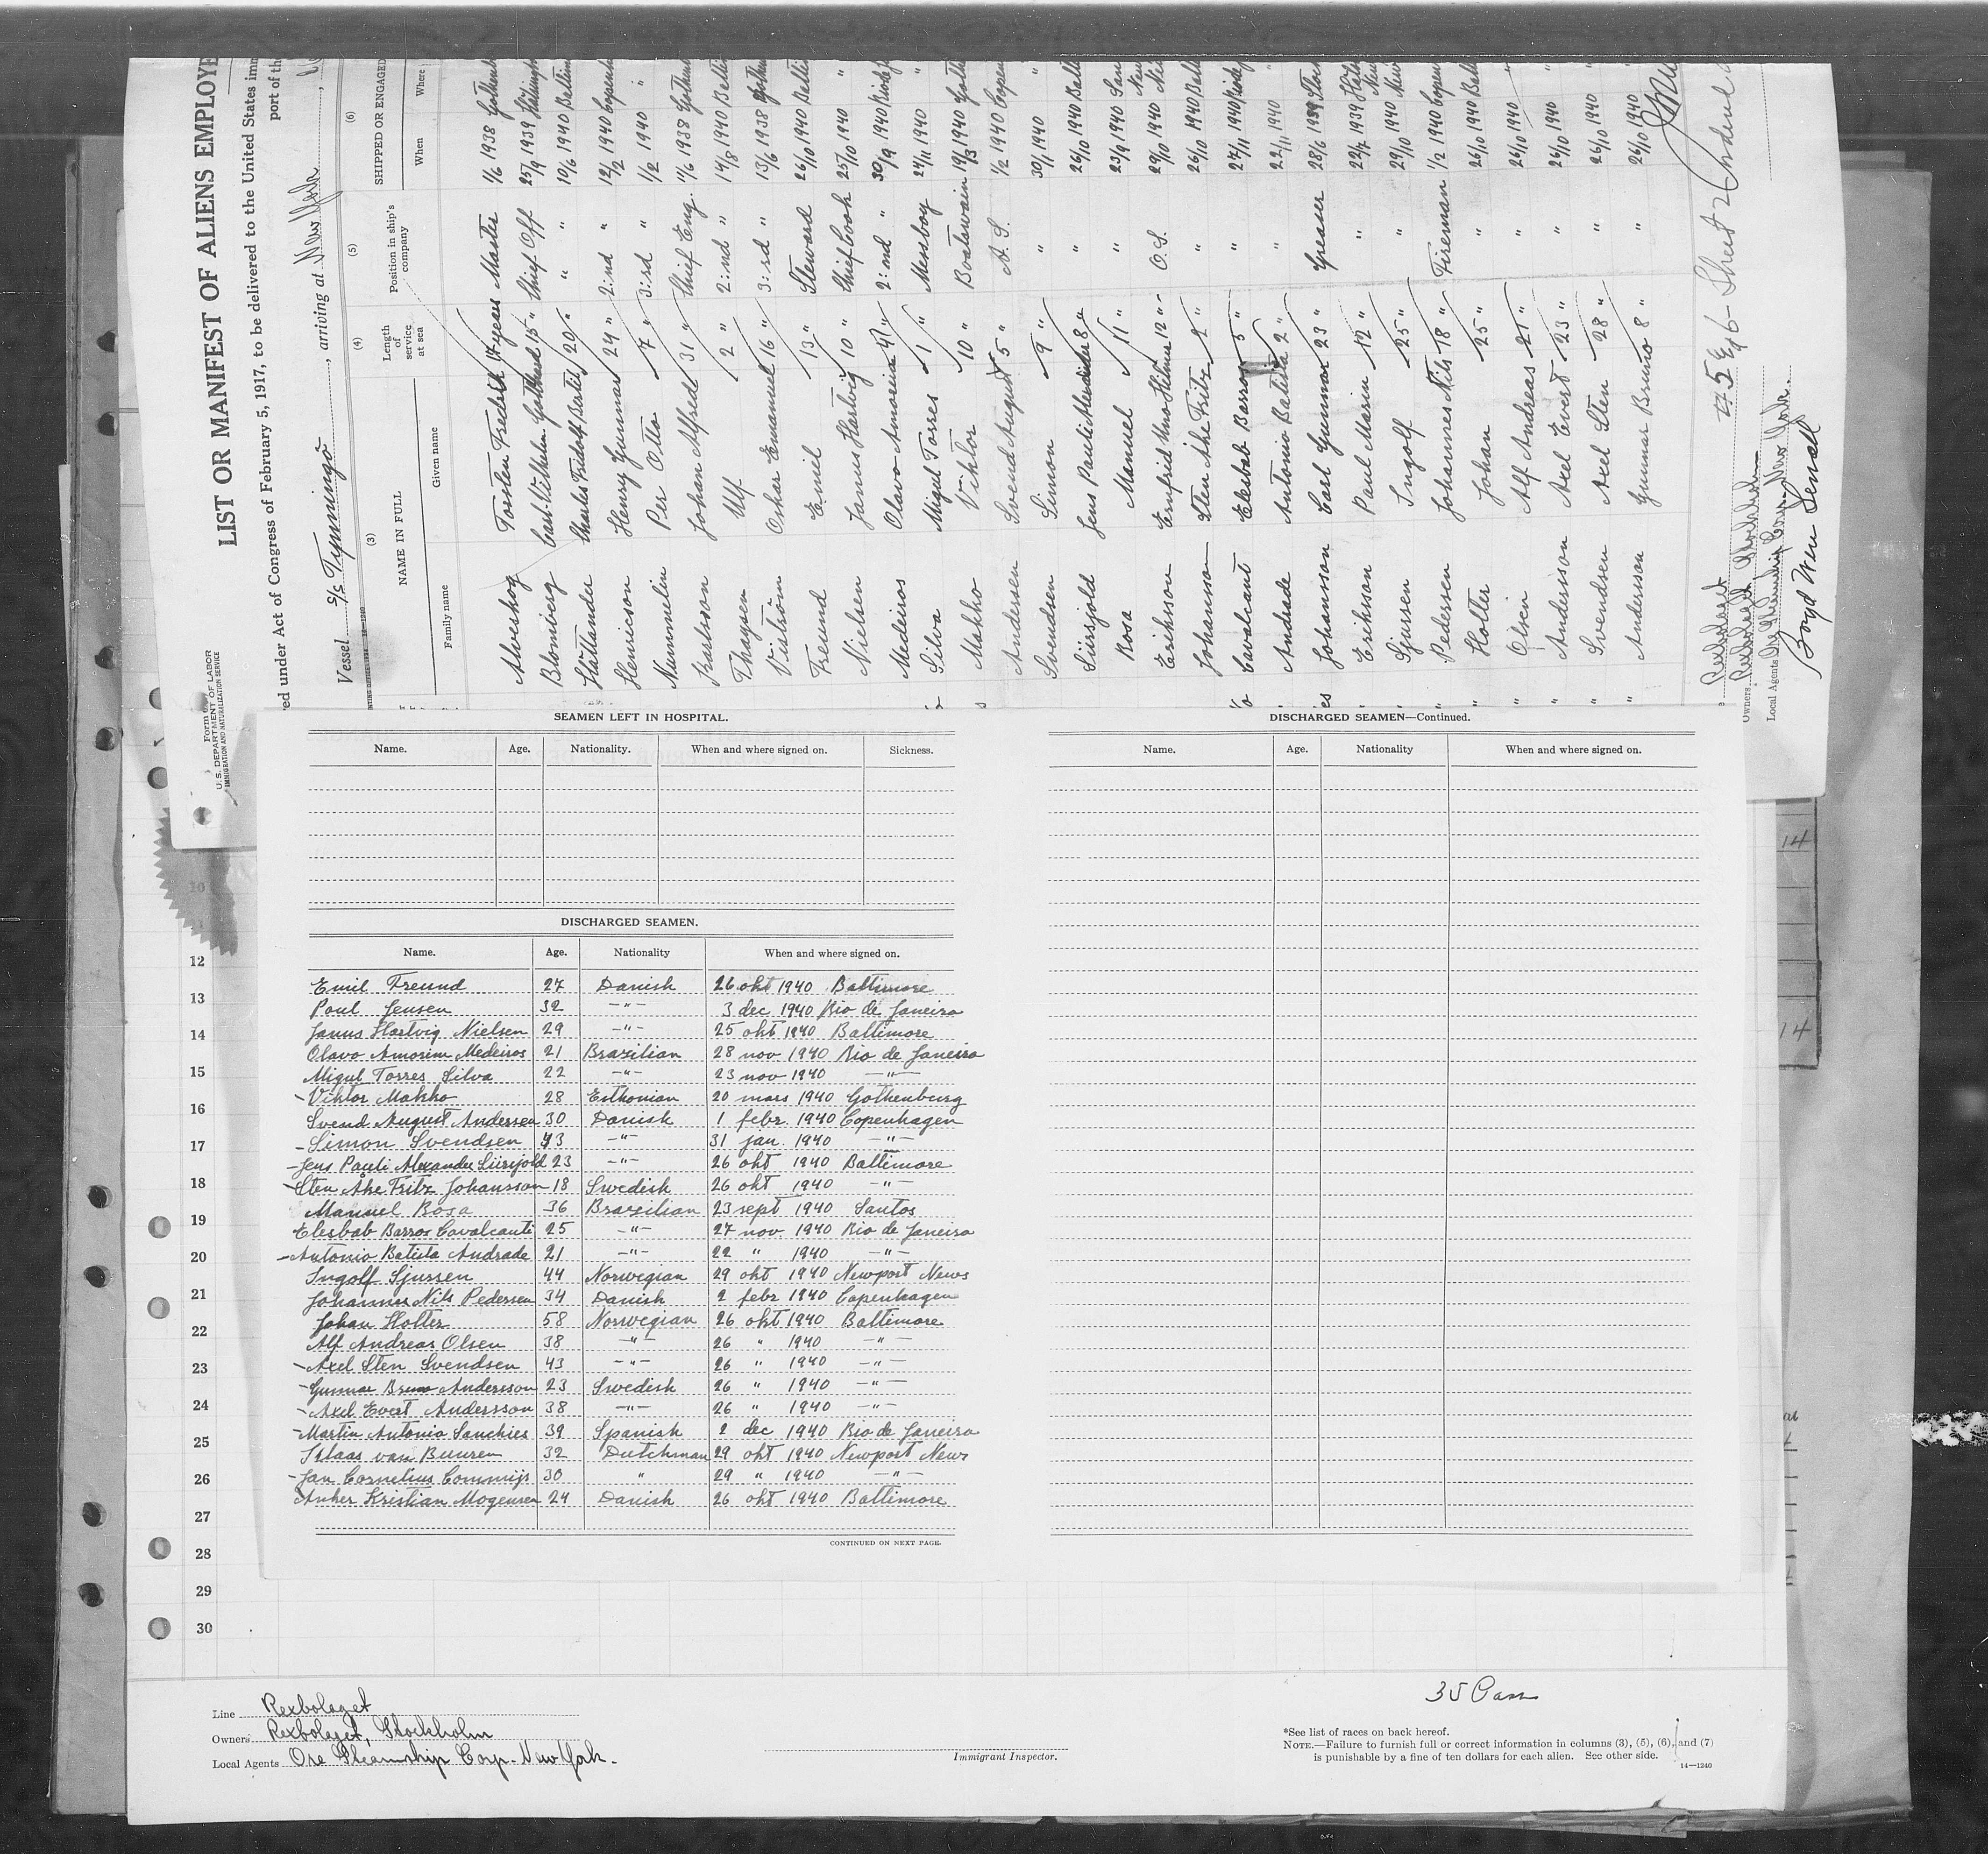 LIST OR MANIFEST OF ALIENS EMPLOYE
red under Act of Congress of February 5, 1917, to be delivered to the United States imm
port of th
Vessel S/S Tynningö, arriving at New York
Form
U. S. DEPARTMENT OF LABOR
IMMIGRATION AND NATURALIZATION SERVICE
(3) (4) (5) (6)
NAME IN FULL Length of service at sea Position in ship's company SHIPPED OR ENGAGED
Family name Given name When Where
Alveskog Torsten Fredrik 17 years Master 1/6 1938
Blomberg Carl Vilhelm Gotthard 15 " Chief Off 25/9 1939
Hättander Charles Fridolf Bertil 20 " " " 10/6 1940
Henricson Henry Gunnar 24 " 2:nd " 12/2 1940
Nummelin Per Otto 7 " 3:rd " 1/2 1940 "
Karlsson Johan Alfred 31 " Chief Eng. 11/6 1938
Thaysen Ulf 2 " 2:nd " 14/8 1940
Viström Oskar Emanuel 16 " 3:rd " 13/6 1938
Freund Emil 13 " Steward 26/10 1940
Nielsen Janus Hartvig 10 " Chief Cook 25/10 1940 "
Medeiros Olavo Amorim 4 " 2:nd " 30/9 1940
Silva Migul Torres 1 " Messboy 24/11 1940 "
Makko Viktor 10 " Boatswain 19/3 1940
Andersen Svend August 5 " A. S. 1/2 1940
Svendsen Simon 9 " " 30/1 1940 "
Sürsjold Jens Pauli Alexander 8 " " 26/10 1940
Rosa Manuel 11 " " 23/9 1940
Eriksson Ernfrid Uno Hilmer 12 " O. S. 29/10 1940
Johansson Sten Åke Fritz 2 " " 26/10 1940
Cavalcant Elesbab Barros 5 " " 27/11 1940
Andrade Antonio Batista 2 " " 22/11 1940 "
Johansson Carl Gunnar 23 " Greaser 28/6 1939
Eriksson Paul Marin 12 " " 22/7 1939
Sjursen Ingolf 25 " " 29/10 1940
Pedersen Johannes Nils 18 " Fireman 1/2 1940
Holter Johan 25 " " 26/10 1940
Olsen Alf Andreas 21 " " 26/10 1940 "
Andersson Axel Evert 23 " " 26/10 1940 "
Svendsen Axel Sten 28 " " 26/10 1940 "
Andersson Gunnar Bruno 8 " " 26/10 1940 "
Rexbolaget
Owners Rexbolaget Stockholm
Local Agents Ore Steamship Corp. New York.
SEAMEN LEFT IN HOSPITAL.
Name. Age. Nationality. When and where signed on. Sickness.
DISCHARGED SEAMEN.
Name. Age. Nationality When and where signed on.
Emil Freund 27 Danish 26 okt 1940 Baltimore
Poul Jensen 32 -"- 3 dec 1940 Rio de Janeiro
Janus Hartvig Nielsen 29 -"- 25 okt 1940 Baltimore
Olavo Amorim Medeiros 21 Brazilian 28 nov 1940 Rio de Janeiro
Migul Torres Silva 22 -"- 23 nov 1940 -"-
- Viktor Makko 28 Esthonian 20 mars 1940 Gothenburg
Svend August Andersen 30 Danish 1 febr. 1940 Copenhagen
- Simon Svendsen 43 -"- 31 jan. 1940 -"-
- Jens Pauli Alexander Süirsjold 23 -"- 26 okt 1940 Baltimore
- Sten Åke Fritz Johansson 18 Swedish 26 okt 1940 -"-
Manuel Rosa 36 Brazilian 23 sept 1940 Santos
Elesbab Barros Cavalcanti 25 -"- 27 nov. 1940 Rio de Janeiro
- Antonio Batista Andrade 21 -"- 22 " 1940 -"-
Ingolf Sjursen 44 Norwegian 29 okt 1940 Newport News
Johannes Nils Pedersen 34 Danish 2 febr 1940 Copenhagen
Johan Holter 58 Norwegian 26 okt 1940 Baltimore
Alf Andreas Olsen 38 -"- 26 " 1940 -"-
- Axel Sten Svendsen 43 -"- 26 " 1940 -"-
- Gunnar Bruno Andersson 23 Swedish 26 " 1940 -"-
- Axel Evert Andersson 38 -"- 26 " 1940 -"-
- Martin Antonio Sanchies 39 Spanish 2 dec 1940 Rio de Janeiro
Klaas van Buuren 32 Dutchman 29 okt 1940 Newport News
- Jan Cornelius Commijs 30 " 29 " 1940 -"-
Anker Kristian Mogensen 24 Danish 26 okt 1940 Baltimore
CONTINUED ON NEXT PAGE.
DISCHARGED SEAMEN—Continued.
Name. Age. Nationality When and where signed on.
10
12
13
14
15
16
17
18
19
20
21
22
23
24
25
26
27
28
29
30
14
14
Line Rexbolaget
Owners Rexbolaget, Stockholm
Local Agents Ore Steamship Corp. New York.
Immigrant Inspector.
*See list of races on back hereof.
NOTE.—Failure to furnish full or correct information in columns (3), (5), (6), and (7)
is punishable by a fine of ten dollars for each alien. See other side.
14—1240